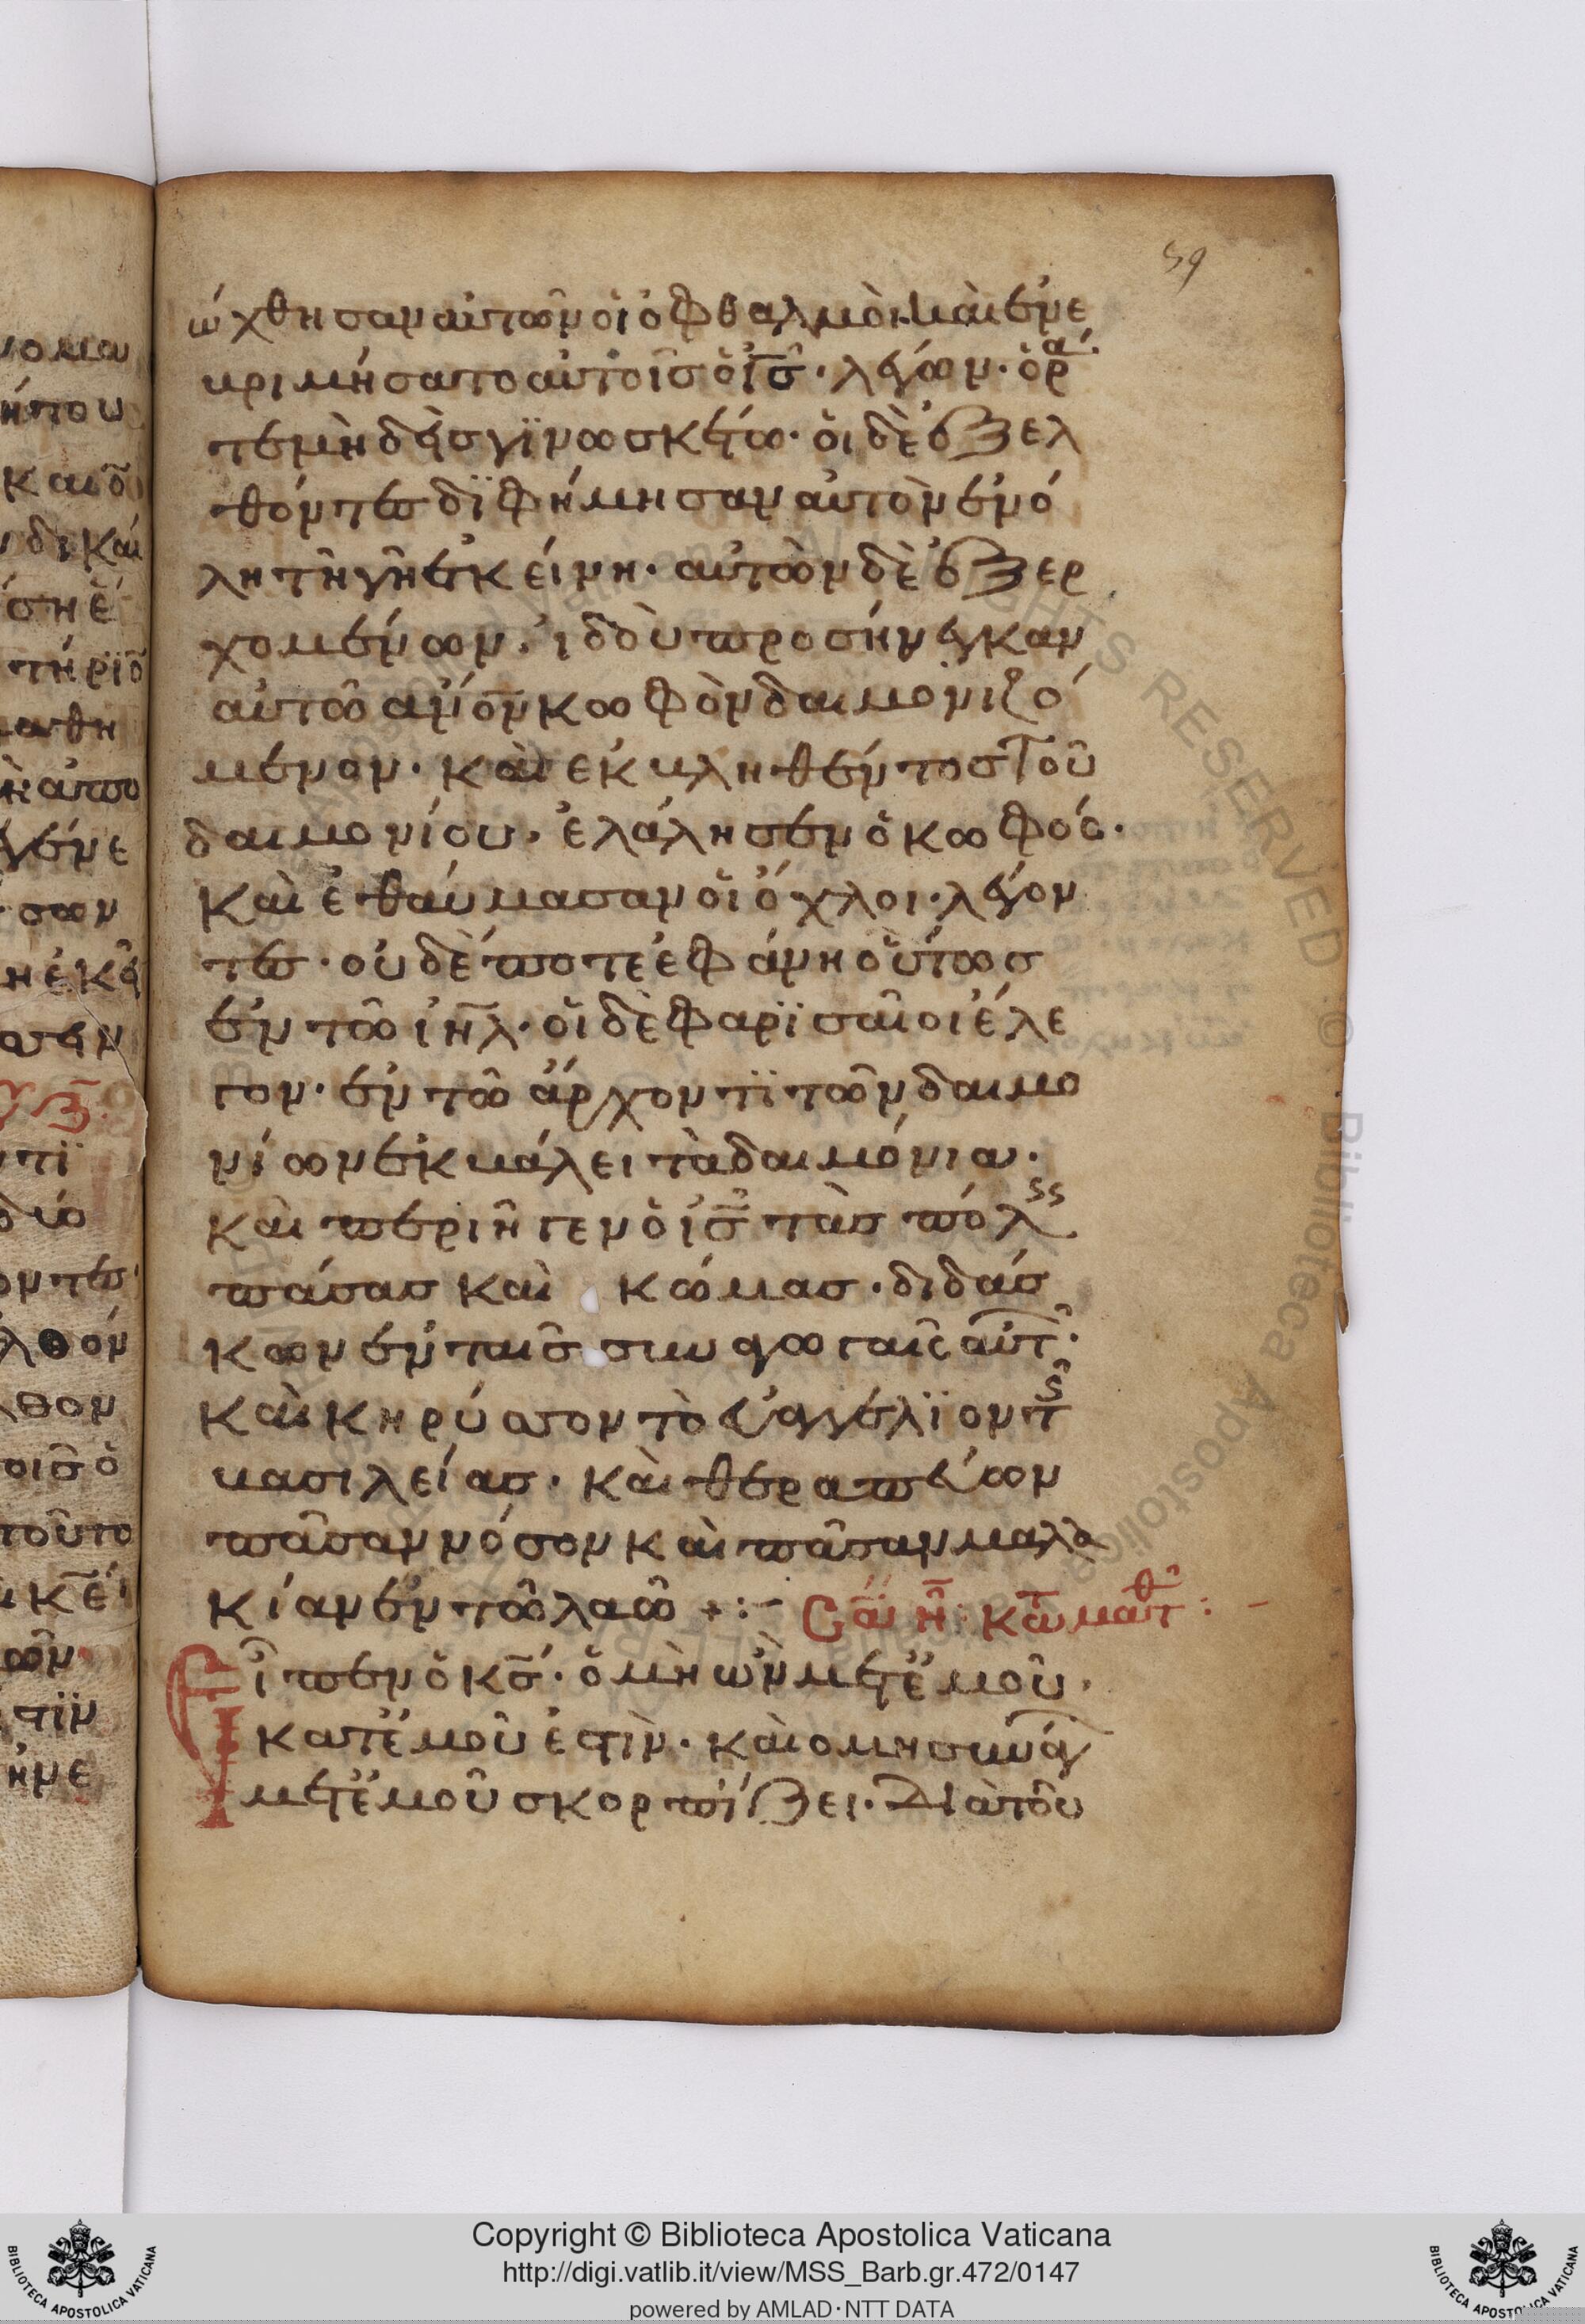 59
ώχθησαν αὐτῶν οἱ ὀφθαλμοὶ· καὶ ἐνε
βριμήσατο αὐτοῖς ὁ ἰς̄· λέγων· ὁρᾶ
τε μὴδεὶς γϊνωσκέτω· οἱ δὲ ἐξελ
θόντες δϊεφήμησαν αὐτὸν ἐν ὅ
λη τῆ γῆ ἐκείνη· αὐτῶν δὲ ἐξερ
χομένων· ἰδοὺ προσήνεγκαν
αὐτῶ ἄνον κωφὸν δαιμονιζό
μενον· καὶ ἐκβληθέντος τοῦ
δαιμονίου· ἐλάλησεν ὁ κωφός·
καὶ ἐθαύμασαν οἱ ὄχλοι· λέγον
τες· οὐδέποτε ἐφάνη οὕτως
ἐν τῶ ἰηλ· οἱ δὲ φαρϊσαῖοι ἔλε
γον· ἐν τῶ ἄρχοντϊ τῶν δαιμο
νίων ἐκβάλει τὰ δαιμόνια·
καὶ περιῆγεν ὁ ἰς̄ τὰς πόλεις
πάσας καὶ κώμας· διδάσ
κων ἐν ταῖς συναγωγαῖς αὐτ·
καὶ κηρύσσον τὸ εὐαγγέλϊον τῆς
βασιλείας· καὶ θεραπεύων
πᾶσαν νόσον καὶ πᾶσαν μαλα
κίαν ἐν τῶ λαῶ +:– Σαββ η̄: κατὰ ματθ: –
Εἶπεν ὁ κς̄· ὁ μὴ ὢν μετ' ἐμοῦ·
κατ' ἐμοῦ ἐστὶν· καὶ ο μη συνάγ
μετ' ἐμοῦ σκορπίζει· Διὰ τοῦ
Copyright © Biblioteca Apostolica Vaticana
http://digi.vatlib.it/view/MSS_Barb.gr.472/0147
powered by AMLAD·NTT DATA